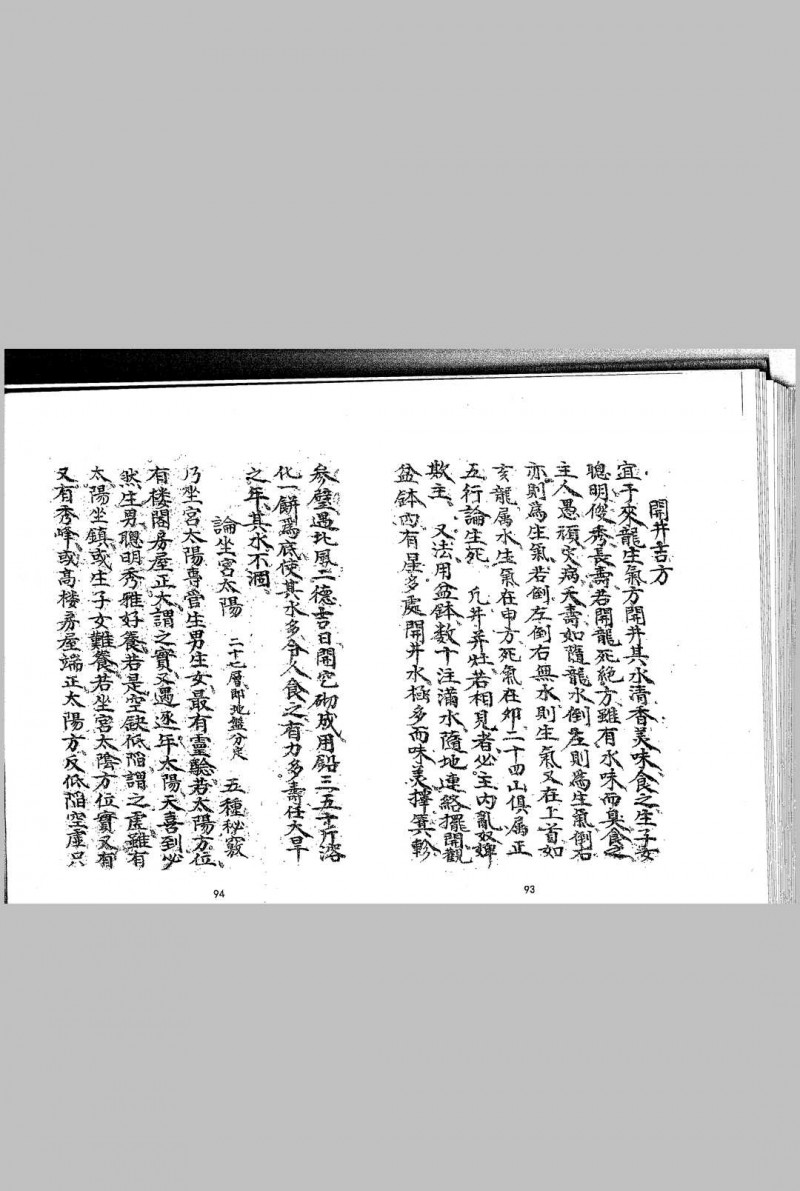 開井吉方
宜于來龍生氣方開井其水清香美味食之生子女
聰明俊秀長壽若開龍死絕方雖有水味而臭食之
主人愚頑災病夭壽如隨龍水倒左則為生氣倒右
亦則為生氣若倒左倒右無水則生氣又在上首如
亥龍属水生氣在申方死氣在卯二十四山俱属正
五行論生死 凡井并灶若相見者必主内亂奴婢
欺主 又法用盆鉢数十注滿水隨地連絡擺開觀
盆鉢内有星多處開井水極多而味美擇箕軫
93
參壁遇北風二德吉日開完砌成用鉛三五十斤溶
化一餅為底使其水多令人食之有力多壽任大旱
之年其水不涸
論坐宮太陽 二十七層即地盤分定 五種秘竅
乃坐宮太陽專管生男生女最有靈驗若太陽方位
有楼閣房屋正大謂之實又遇逐年太陽天喜到必
然生男聰明秀雅好養若是空缺低陷謂之虛雖有
太陽坐鎮或生子女難養若坐宮太陰方位實又有
又有秀峰或高楼房屋端正太陽方反低陷空虛只
94